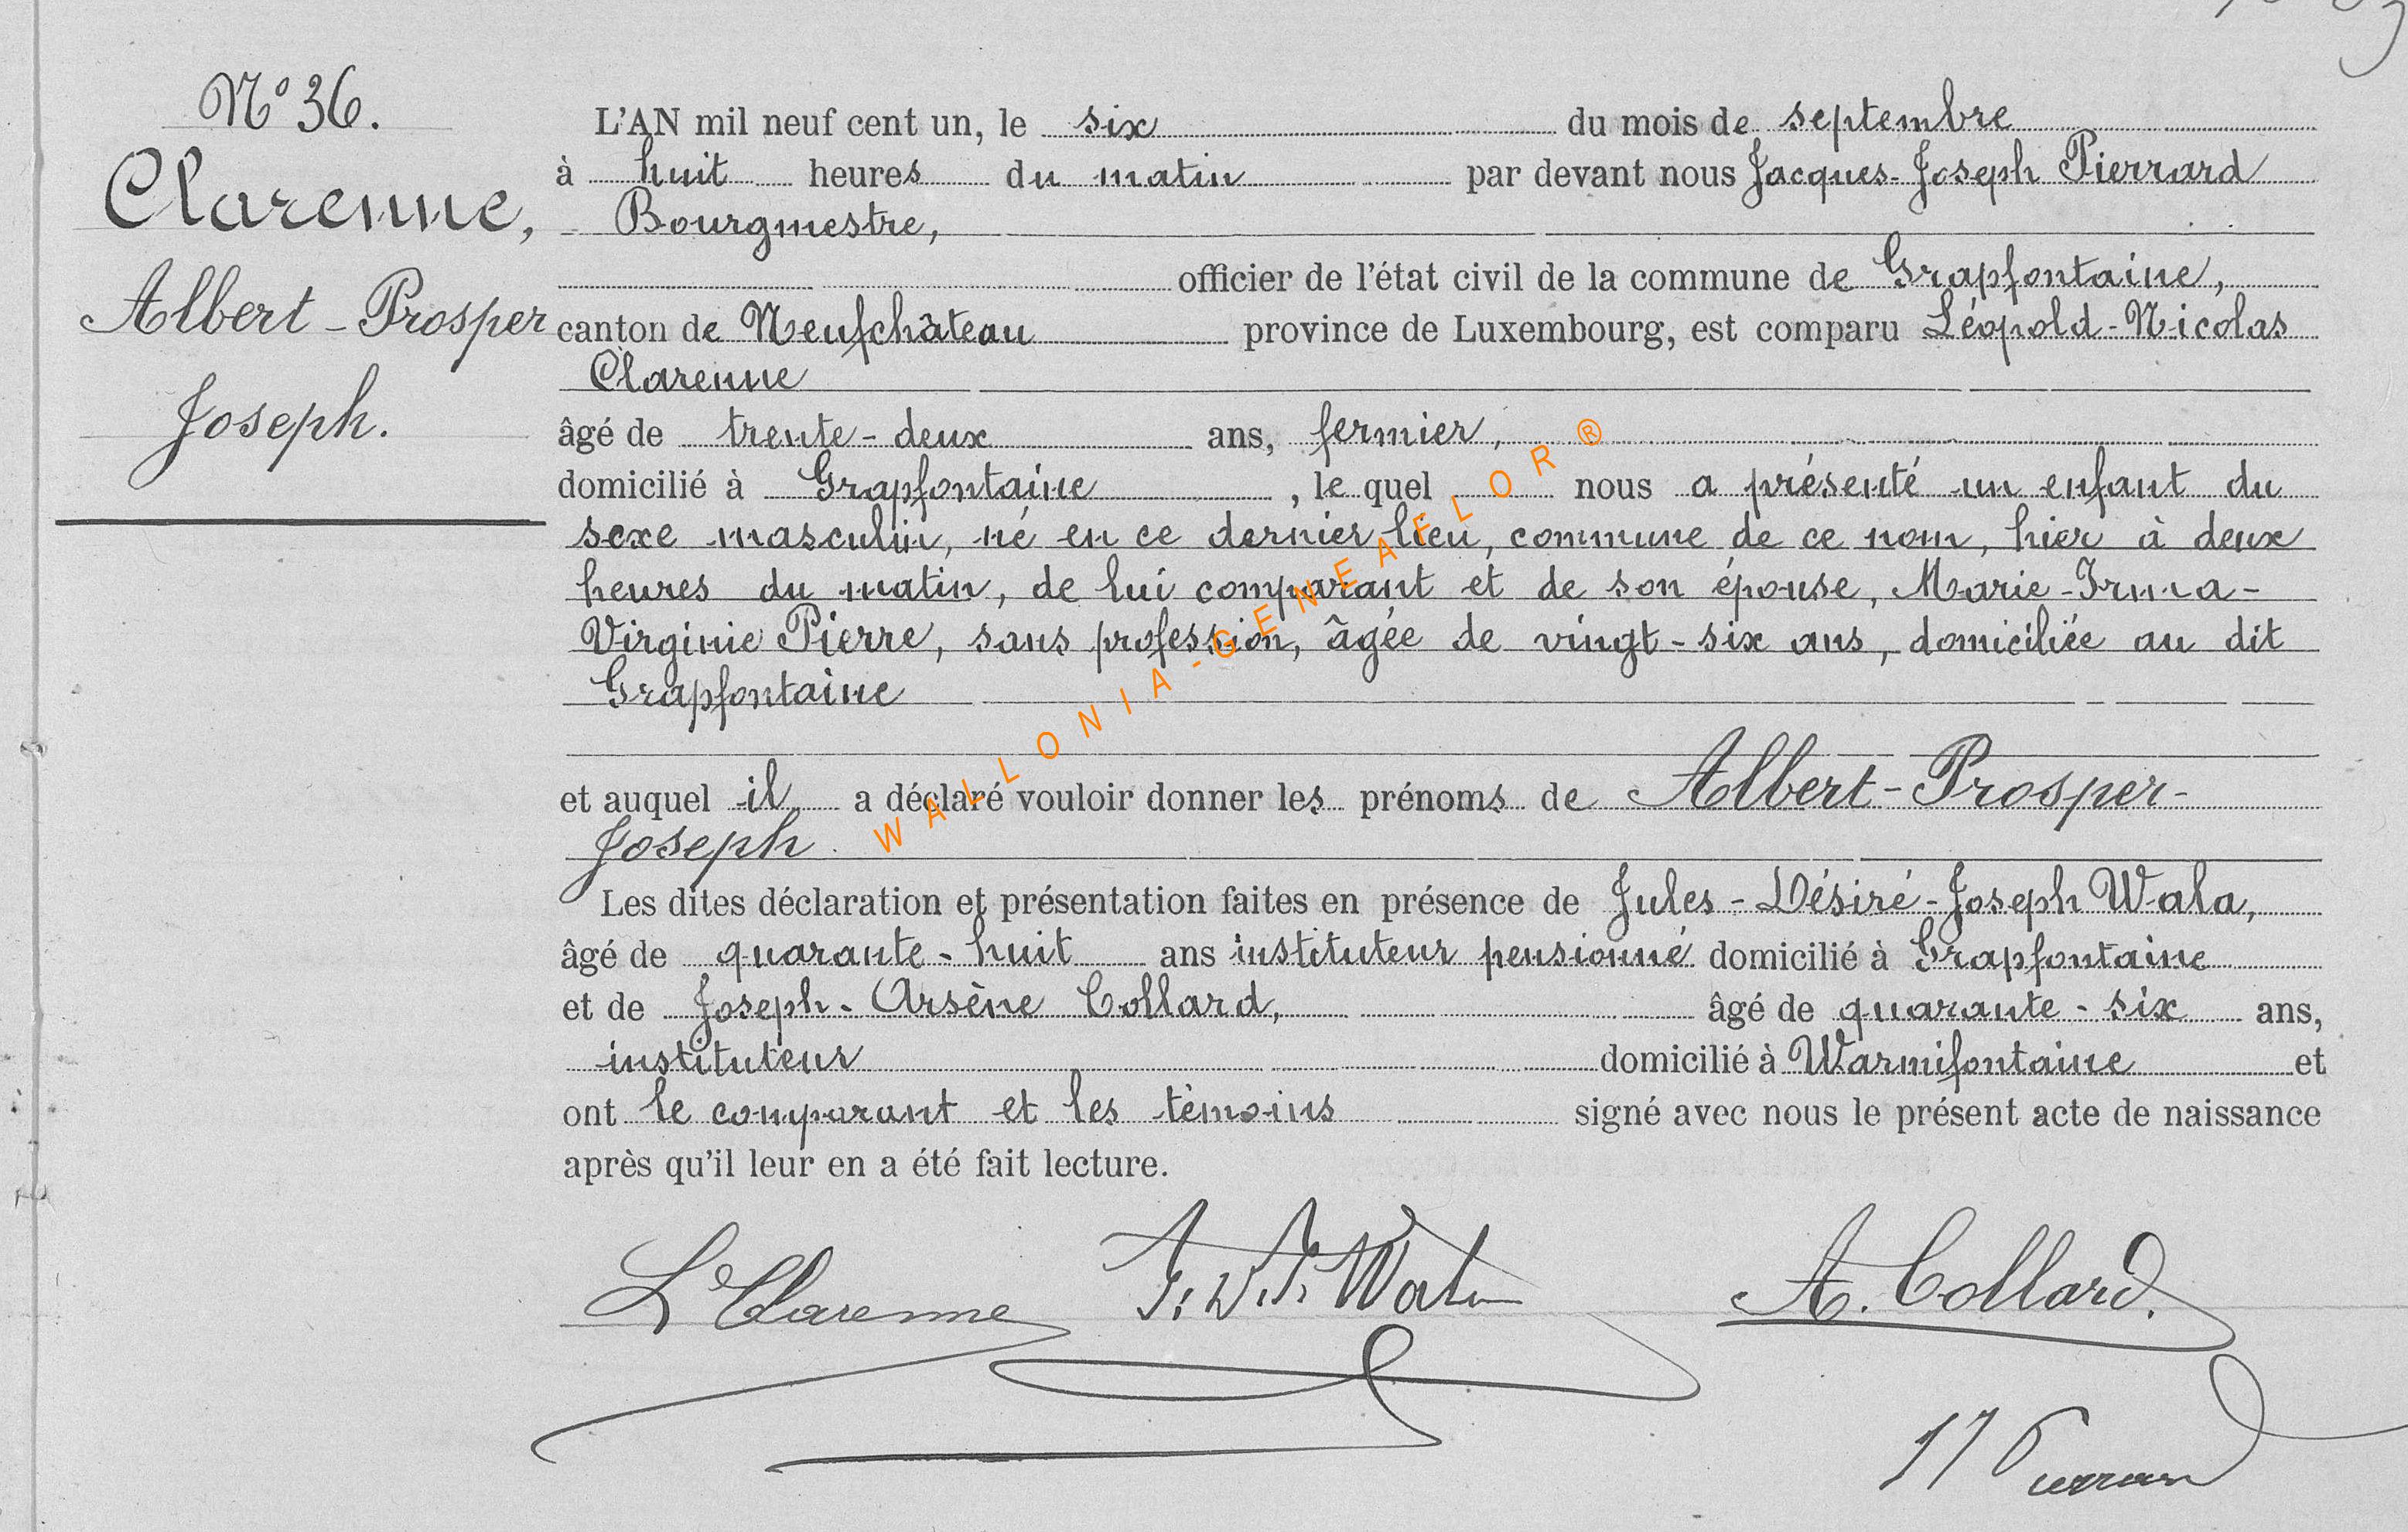 N° 36.
Clarenne,
Albert - Prosper
Joseph.
L'AN mil neuf cent un, le six du mois de septembre
à huit heures du matin par devant nous Jacques-Joseph Pierrard
Bourgmestre,
officier de l'état civil de la commune de Grapfontaine,
canton de Neufchâteau province de Luxembourg, est comparu Léopold-Nicolas
Clarenne
âgé de trente-deux ans, fermier,
domicilié à Grapfontaine, le quel nous a présenté un enfant du
sexe masculin, né en ce dernier lieu, commune de ce nom, hier à deux
heures du matin, de lui comparant et de son épouse, Marie-Irma-
Virginie Pierre, sans profession, âgée de vingt-six ans, domiciliée au dit
Grapfontaine
et auquel il a déclaré vouloir donner les prénoms de Albert-Prosper-
Joseph.
Les dites déclaration et présentation faites en présence de Jules-Désiré-Joseph Wala,
âgé de quarante-huit ans instituteur pensionné domicilié à Grapfontaine
et de Joseph-Arsène Collard, âgé de quarante-six ans,
instituteur domicilié à Warmifontaine et
ont le comparant et les témoins signé avec nous le présent acte de naissance
après qu'il leur en a été fait lecture.
L Clarenne J. D. J. Wala A. Collard.
Pierrard
WALLONIA-GENEAFLOR®